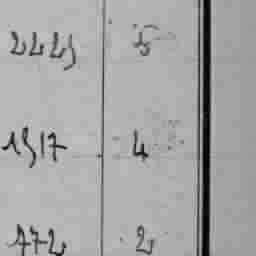 2225 5
1517 4
772 2